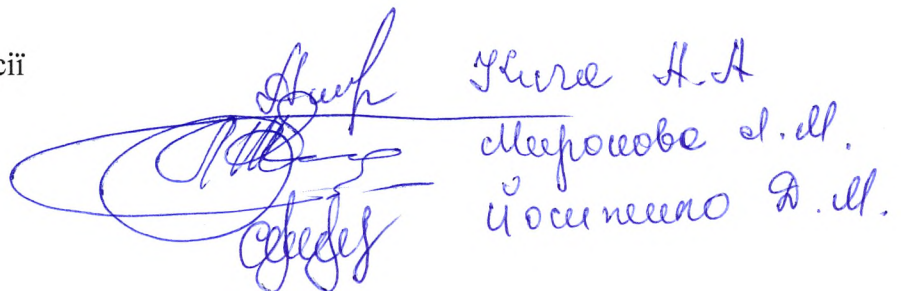 сії
Н. А
Миронова Л. М.
Йосипенко Д. М.